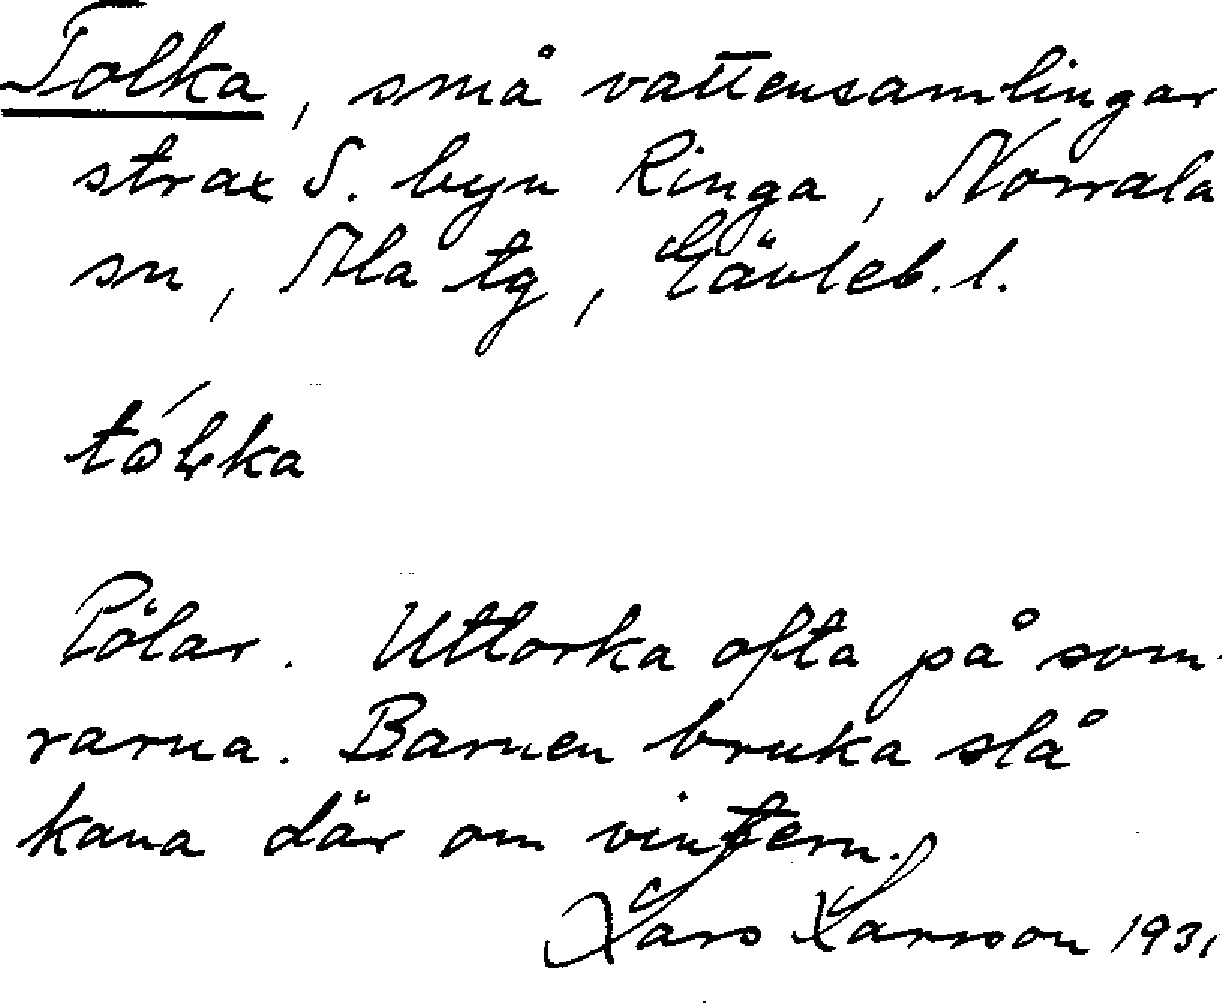 Tolka, små vattensamlingar
strax S. byn Ringa, Norrala
sn, Ala tg, Gävleb. l.
tólka
Pölar. Uttorka ofta på som-
rarna. Barnen bruka slå
kana där om vintern.
Lars Larsson 1931